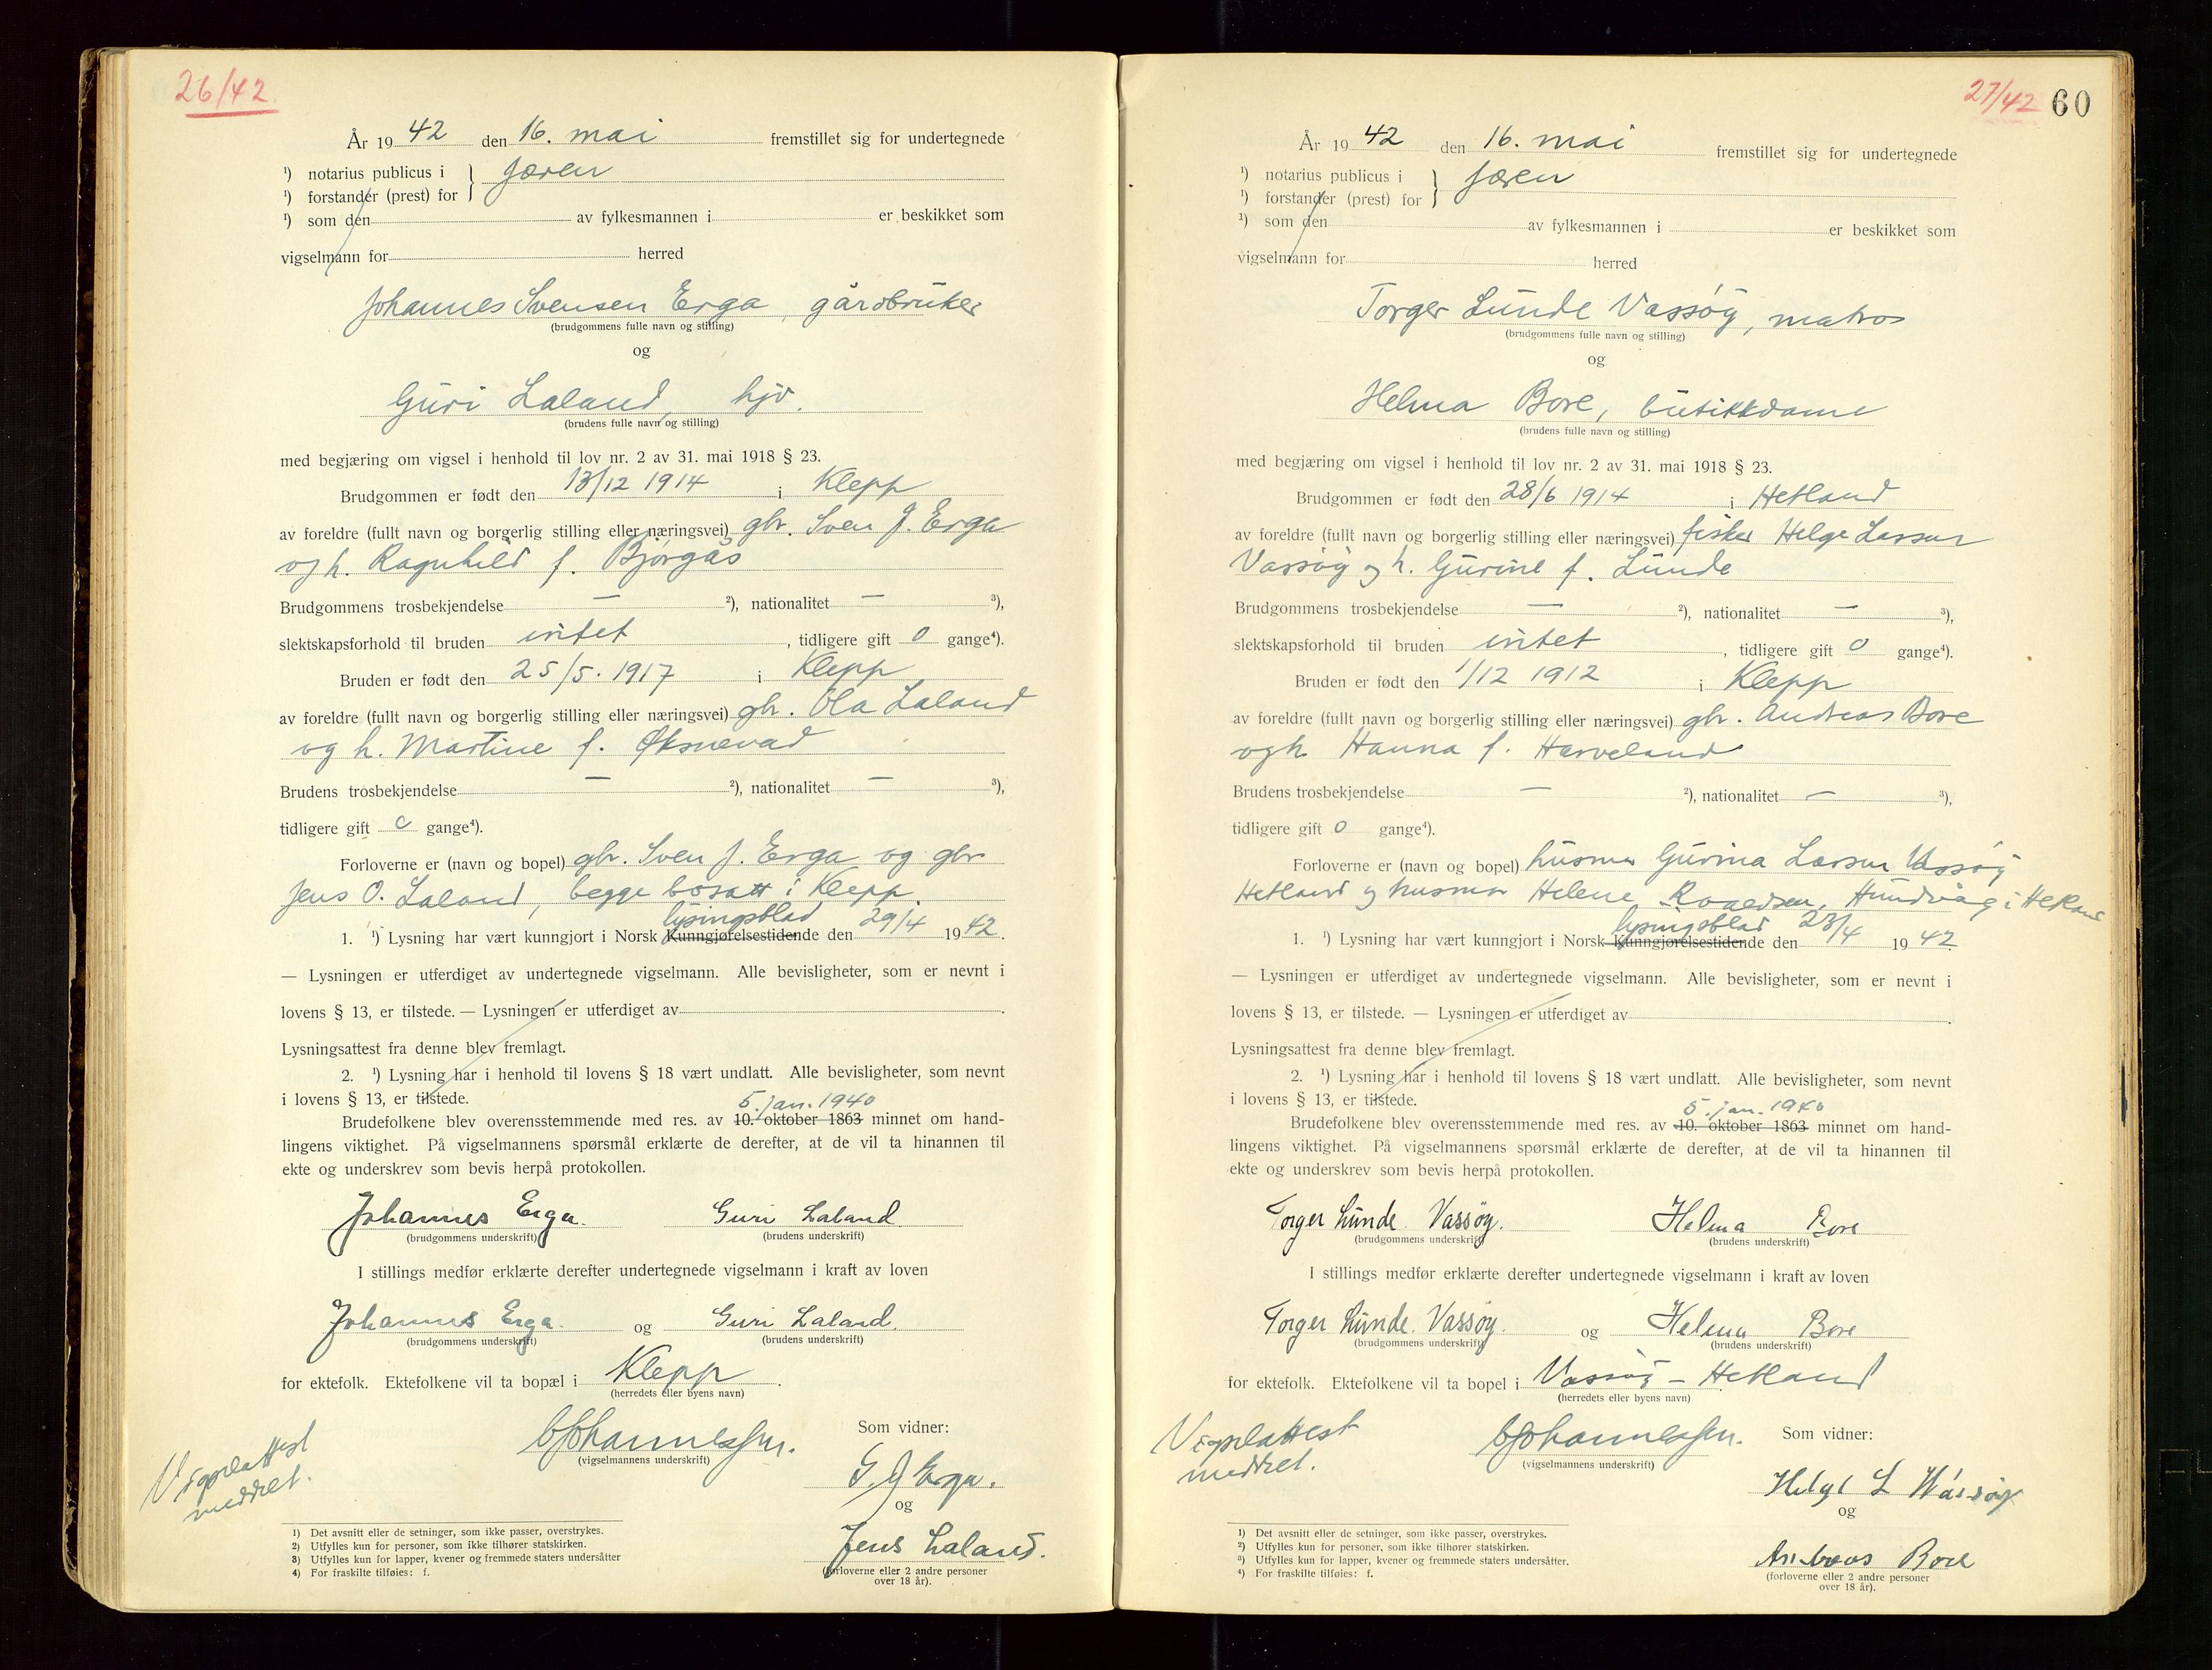 26/42
År 1942 den 16. mai fremstillet sig for undertegnede
¹) notarius publicus i } Jæren
¹) forstander (prest) for
¹) som den av fylkesmannen i er beskikket som
vigselmann for herred
Johannes Svensen Erga, gårdbruker
(brudgommens fulle navn og stilling)
og
Guri Laland, hjv.
(brudens fulle navn og stilling)
med begjæring om vigsel i henhold til lov nr. 2 av 31. mai 1918 § 23.
Brudgommen er født den 13/12 1914 i Klepp
av foreldre (fullt navn og borgerlig stilling eller næringsvei) gbr. Sven J. Erga
og h. Ragnhild f. Bjorgås
Brudgommens trosbekjendelse — ²), nationalitet — ³),
slektskapsforhold til bruden intet, tidligere gift 0 gange⁴).
Bruden er født den 25/5. 1917 i Klepp
av foreldre (fullt navn og borgerlig stilling eller næringsvei) gbr. Ola Laland
og h. Martine f. Øksnevad
Brudens trosbekjendelse — ²), nationalitet — ³),
tidligere gift 0 gange⁴).
Forloverne er (navn og bopel) gbr. Sven J. Erga og gbr
Jens O. Laland, begge bosatt i Klepp.
lysingsblad
1. ¹) Lysning har vært kunngjort i Norsk Kunngjørelsestidende den 29/4 1942.
— Lysningen er utferdiget av undertegnede vigselmann. Alle bevisligheter, som er nevnt i
lovens § 13, er tilstede. — Lysningen er utferdiget av
Lysningsattest fra denne blev fremlagt.
2. ¹) Lysning har i henhold til lovens § 18 vært undlatt. Alle bevisligheter, som nevnt
i lovens § 13, er tilstede.
5. jan. 1940
Brudefolkene blev overensstemmende med res. av 10. oktober 1863 minnet om hand-
lingens viktighet. På vigselmannens spørsmål erklærte de derefter, at de vil ta hinannen til
ekte og underskrev som bevis herpå protokollen.
Johannes Erga. Guri Laland
(brudgommens underskrift) (brudens underskrift)
I stillings medfør erklærte derefter undertegnede vigselmann i kraft av loven
Johannes Erga. og Guri Laland.
(brudgommens underskrift) (brudens underskrift)
for ektefolk. Ektefolkene vil ta bopæl i Klepp.
(herredets eller byens navn)
Vigselattest
meddelt.
Johannessen.
(vigselmannens underskrift)
Som vidner:
S. J Erga.
og
Jens Laland.
(forloverne eller 2 andre personer
over 18 år).
1) Det avsnitt eller de setninger, som ikke passer, overstrykes.
2) Utfylles kun for personer, som ikke tilhører statskirken.
3) Utfylles kun for lapper, kvener og fremmede staters undersåtter
4) For fraskilte tilføies: f.
27/42 60
År 1942 den 16. mai fremstillet sig for undertegnede
¹) notarius publicus i } Jæren
¹) forstander (prest) for
¹) som den av fylkesmannen i er beskikket som
vigselmann for herred
Torger Lunde Vassøy, matros
(brudgommens fulle navn og stilling)
og
Helma Bore, butikkdame
(brudens fulle navn og stilling)
med begjæring om vigsel i henhold til lov nr. 2 av 31. mai 1918 § 23.
Brudgommen er født den 28/6 1914 i Hetland
av foreldre (fullt navn og borgerlig stilling eller næringsvei) fisker Helge Larsen
Vassøy og h. Gurine f. Lunde
Brudgommens trosbekjendelse — ²), nationalitet — ³),
slektskapsforhold til bruden intet, tidligere gift 0 gange⁴).
Bruden er født den 1/12 1912 i Klepp
av foreldre (fullt navn og borgerlig stilling eller næringsvei) gbr. Andreas Bore
og h Hanna f. Harveland
Brudens trosbekjendelse — ²), nationalitet — ³),
tidligere gift 0 gange⁴).
Forloverne er (navn og bopel) husmor Gurina Larsen Vassøy
Hetland og husmor Helene Roaldsen, Hundvåg i Hetland
lysingsblad
1. ¹) Lysning har vært kunngjort i Norsk Kunngjørelsestidende den 28/4 1942.
— Lysningen er utferdiget av undertegnede vigselmann. Alle bevisligheter, som er nevnt i
lovens § 13, er tilstede. — Lysningen er utferdiget av
Lysningsattest fra denne blev fremlagt.
2. ¹) Lysning har i henhold til lovens § 18 vært undlatt. Alle bevisligheter, som nevnt
i lovens § 13, er tilstede.
5. jan. 1940
Brudefolkene blev overensstemmende med res. av 10. oktober 1863 minnet om hand-
lingens viktighet. På vigselmannens spørsmål erklærte de derefter, at de vil ta hinannen til
ekte og underskrev som bevis herpå protokollen.
Torger Lunde. Vassøy. Helma Bore
(brudgommens underskrift) (brudens underskrift)
I stillings medfør erklærte derefter undertegnede vigselmann i kraft av loven
Torger Lunde. Vassøy. og Helma Bore
(brudgommens underskrift) (brudens underskrift)
for ektefolk. Ektefolkene vil ta bopel i Vassøy – Hetland
(herredets eller byens navn)
Vigselattest
meddelt.
Johannessen.
(vigselmannens underskrift)
Som vidner:
Helge L Vassøy
og
Andreas Bore
(forloverne eller 2 andre personer
over 18 år).
1) Det avsnitt eller de setninger, som ikke passer, overstrykes.
2) Utfylles kun for personer, som ikke tilhører statskirken.
3) Utfylles kun for lapper, kvener og fremmede staters undersåtter.
4) For fraskilte tilføies: f.